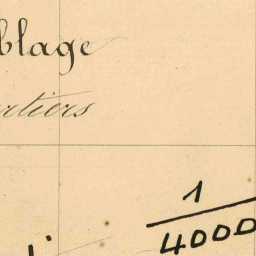 blage
rtiers
1/4000